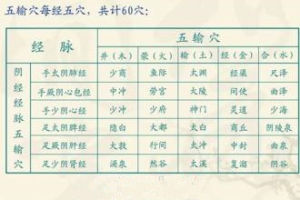 五输穴每经五穴，共计60穴：
经 脉 五输穴
井（木） 荥（火） 输（土） 经（金） 合（水）
阴经经脉五输穴
手太阴肺经 少商 鱼际 太渊 经渠 尺泽
手厥阴心包经 中冲 劳宫 大陵 间使 曲泽
手少阴心经 少冲 少府 神门 灵道 少海
足太阴脾经 隐白 大都 太白 商丘 阴陵泉
足厥阴肝经 大敦 行间 太冲 中封 曲泉
足少阴肾经 涌泉 然谷 太溪 复溜 阴谷